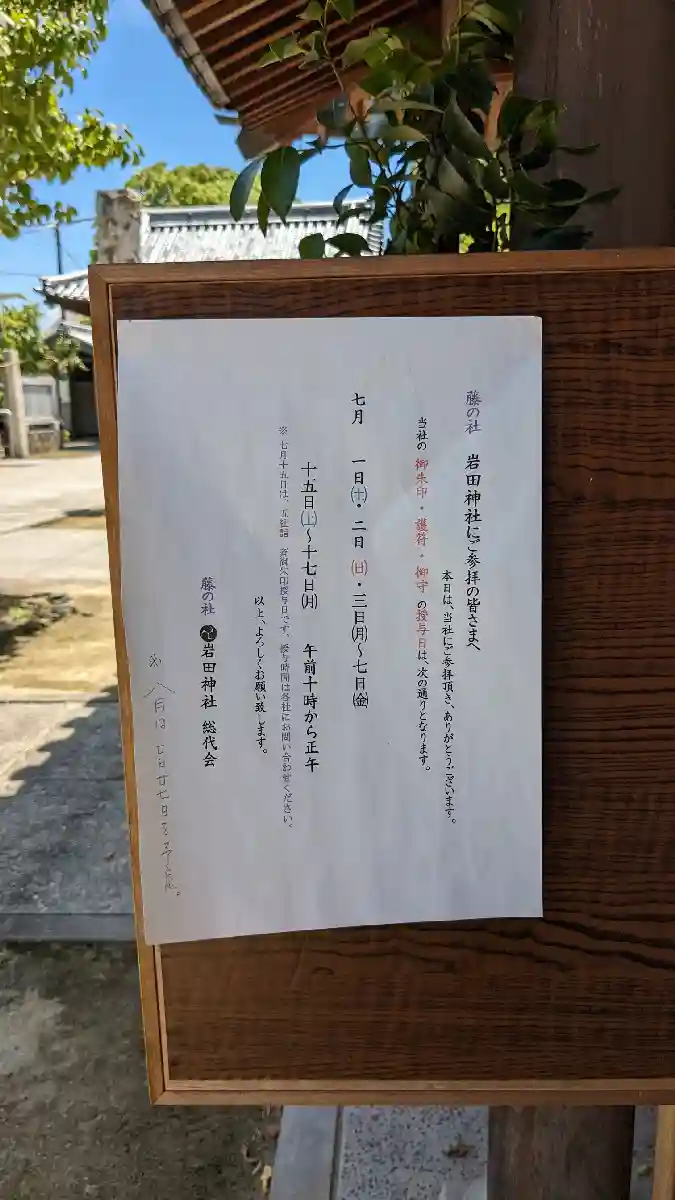 藤の社 岩田神社にご参拝の皆さまへ
本日は、当社にご参拝頂き、ありがとうございます。
当社の 御朱印・護符・御守 の授与日は、次の通りとなります。
七月 一日㈯・二日 ㈰・三日㈪～七日㈮
十五日㈯～十七日㈪ 午前十時から正午
※ 七月十五日は、五社詣 御朱印授与日です。授与時間は各社にお問い合わせください。
以上、よろしくお願い致します。
藤の社 岩田神社 総代会
八月は 廿七日を予定。